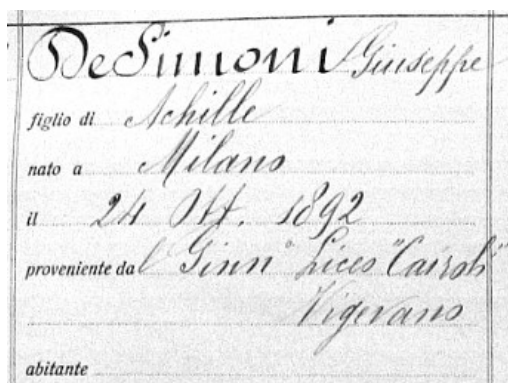 De Simoni Giuseppe
figlio di Achille
nato a Milano
il 24 Ott. 1892
proveniente dal Ginn° Liceo "Cairoli"
Vigevano
abitante